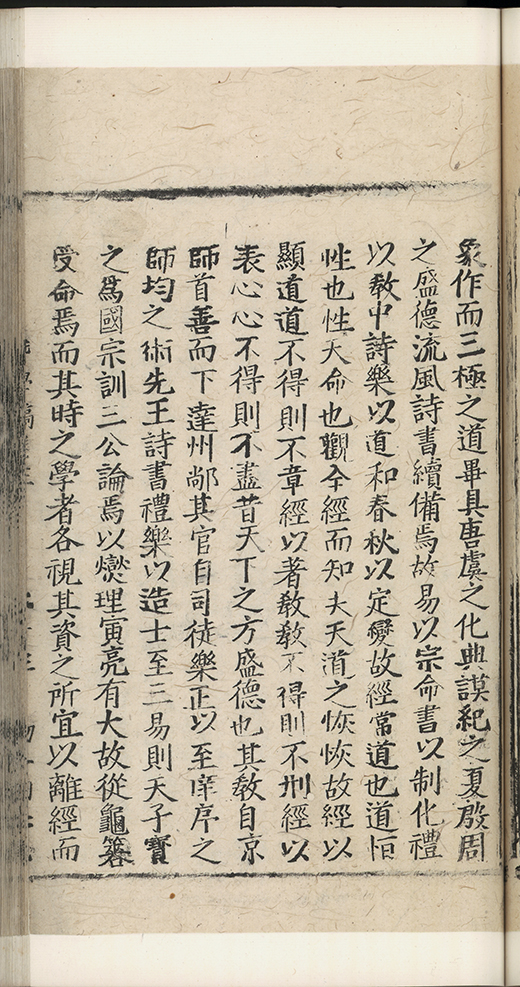 象作而三極之道畢具唐虞之化典謨紀之夏殷周
之盛德流風詩書續備焉故易以宗命書以制化禮
以敎中詩樂以道和春秋以定變故經常道也道恒
性也性天命也觀全經而知夫天道之恢恢故經以
顯道道不得則不章經以著敎敎不得則不刑經以
表心心不得則不盡昔天下之方盛德也其敎自京
師首善而下達州鄗其官自司徒樂正以至庠序之
師均之術先王詩書禮樂以造士至三易則天子寶
之爲國宗訓三公論焉以爕理寅亮有大故從龜筮
受命焉而其時之學者各視其資之所宜以離經而